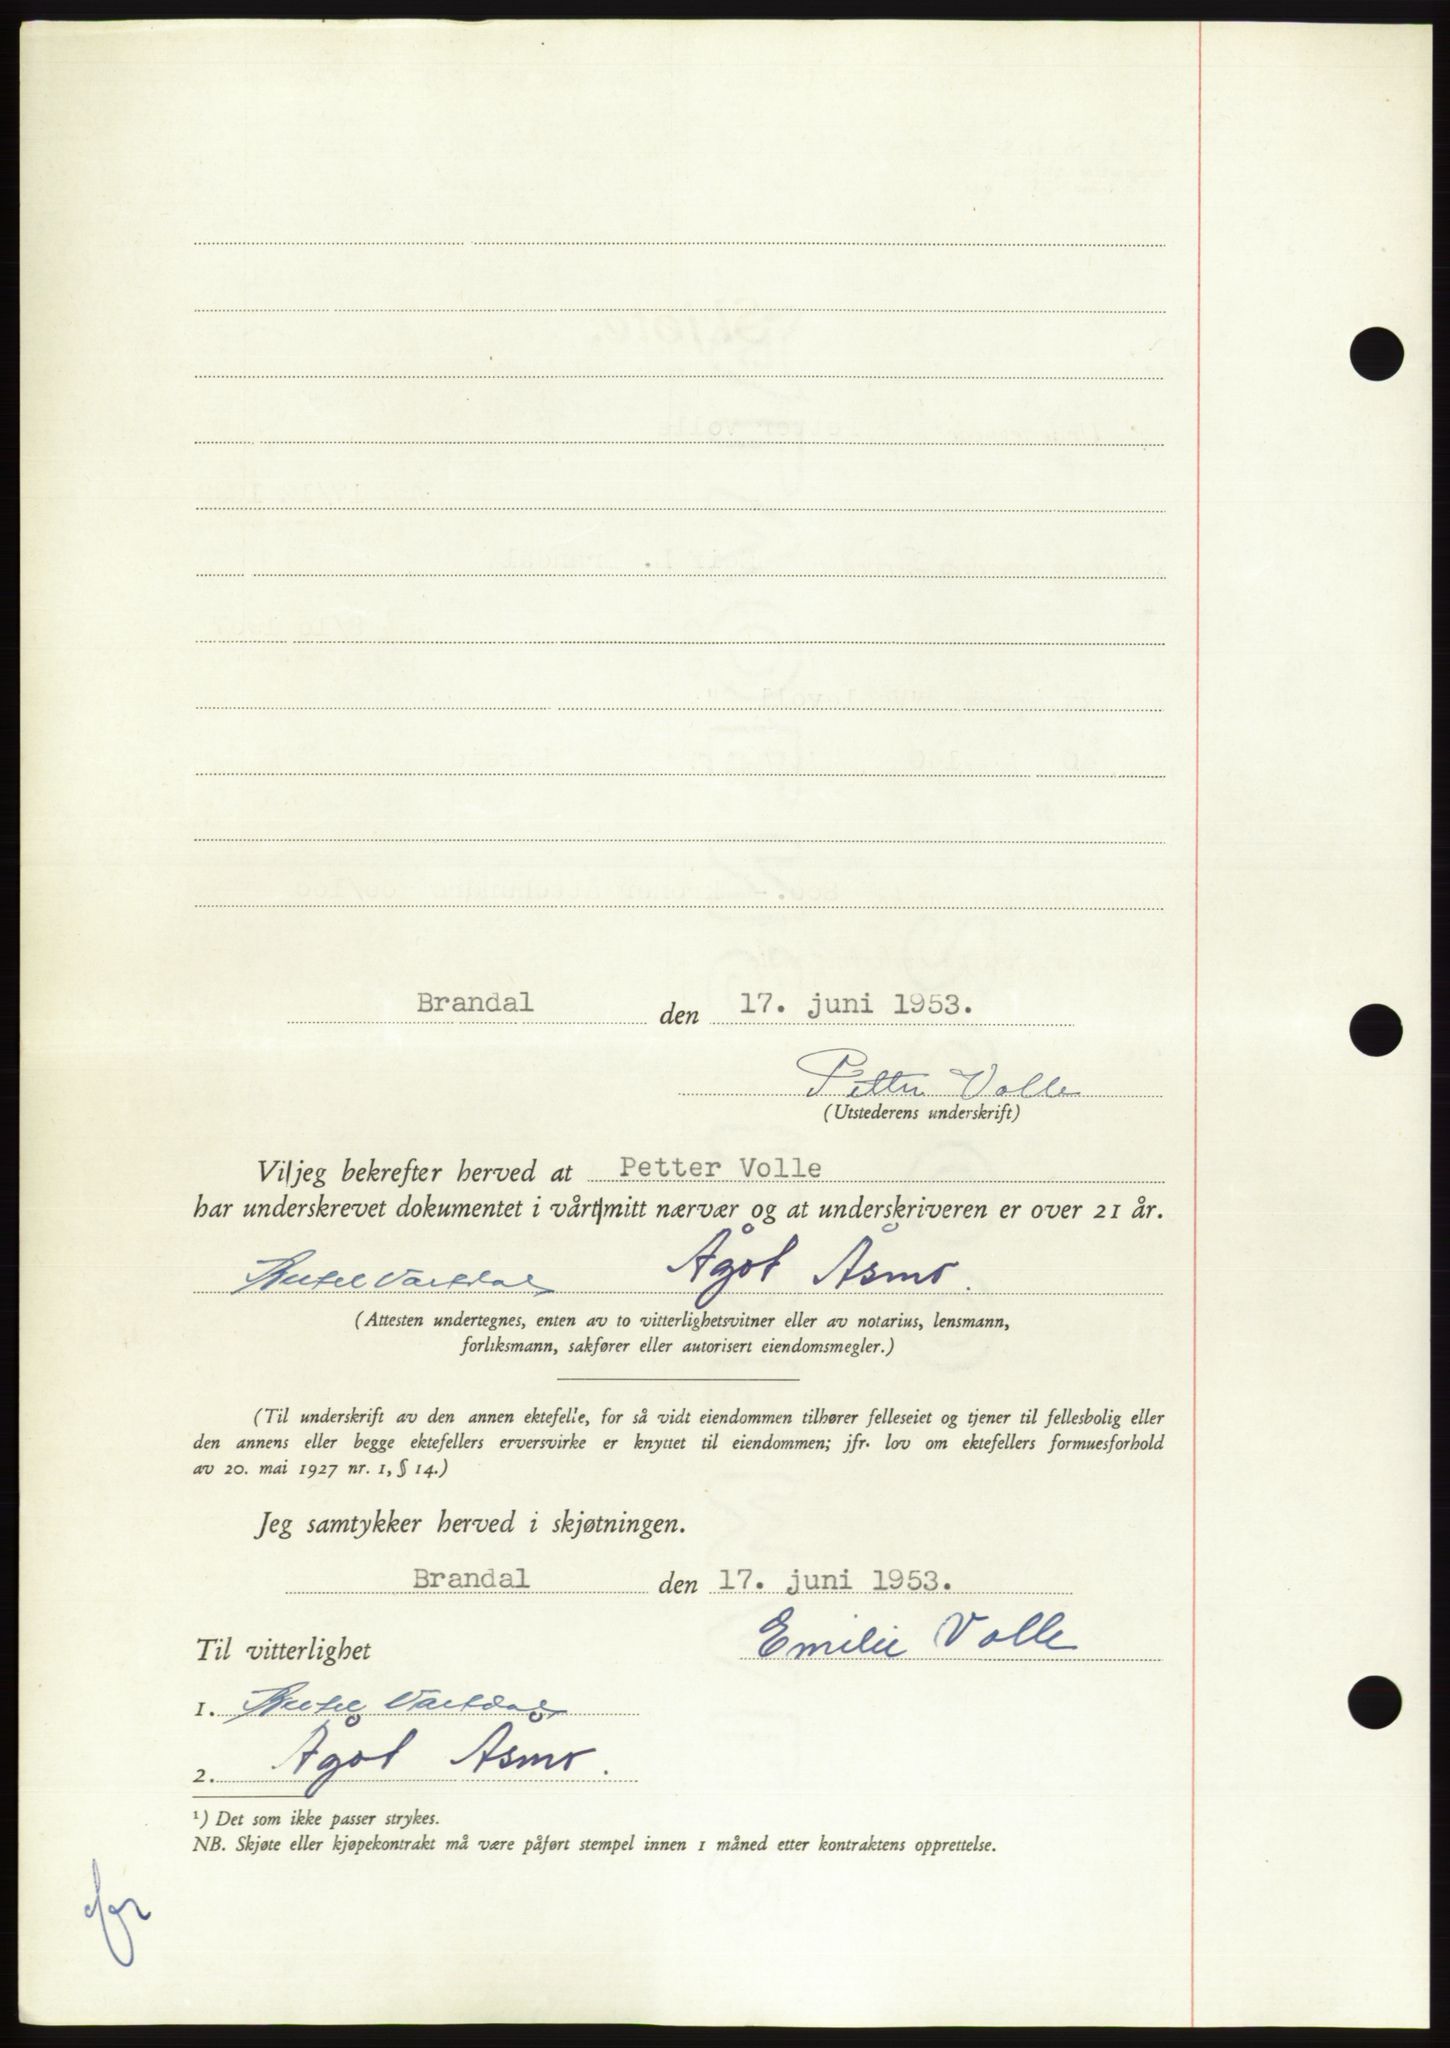 Brandal den 17. juni 1953.
Petter Volle
(Utstederens underskrift)
Vi/jeg bekrefter herved at Petter Volle
har underskrevet dokumentet i vårt/mitt nærvær og at underskriveren er over 21 år.
Vartdal Ågot Åsmo.
(Attesten undertegnes, enten av to vitterlighetsvitner eller av notarius, lensmann,
forliksmann, sakfører eller autorisert eiendomsmegler.)
(Til underskrift av den annen ektefelle, for så vidt eiendommen tilhører felleseiet og tjener til fellesbolig eller
den annens eller begge ektefellers erversvirke er knyttet til eiendommen; jfr. lov om ektefellers formuesforhold
av 20. mai 1927 nr. 1, § 14.)
Jeg samtykker herved i skjøtningen.
Brandal den 17. juni 1953.
Emilie Volle
Til vitterlighet
1. Vartdal
2. Ågot Åsmo.
¹) Det som ikke passer strykes.
NB. Skjøte eller kjøpekontrakt må være påført stempel innen 1 måned etter kontraktens opprettelse.